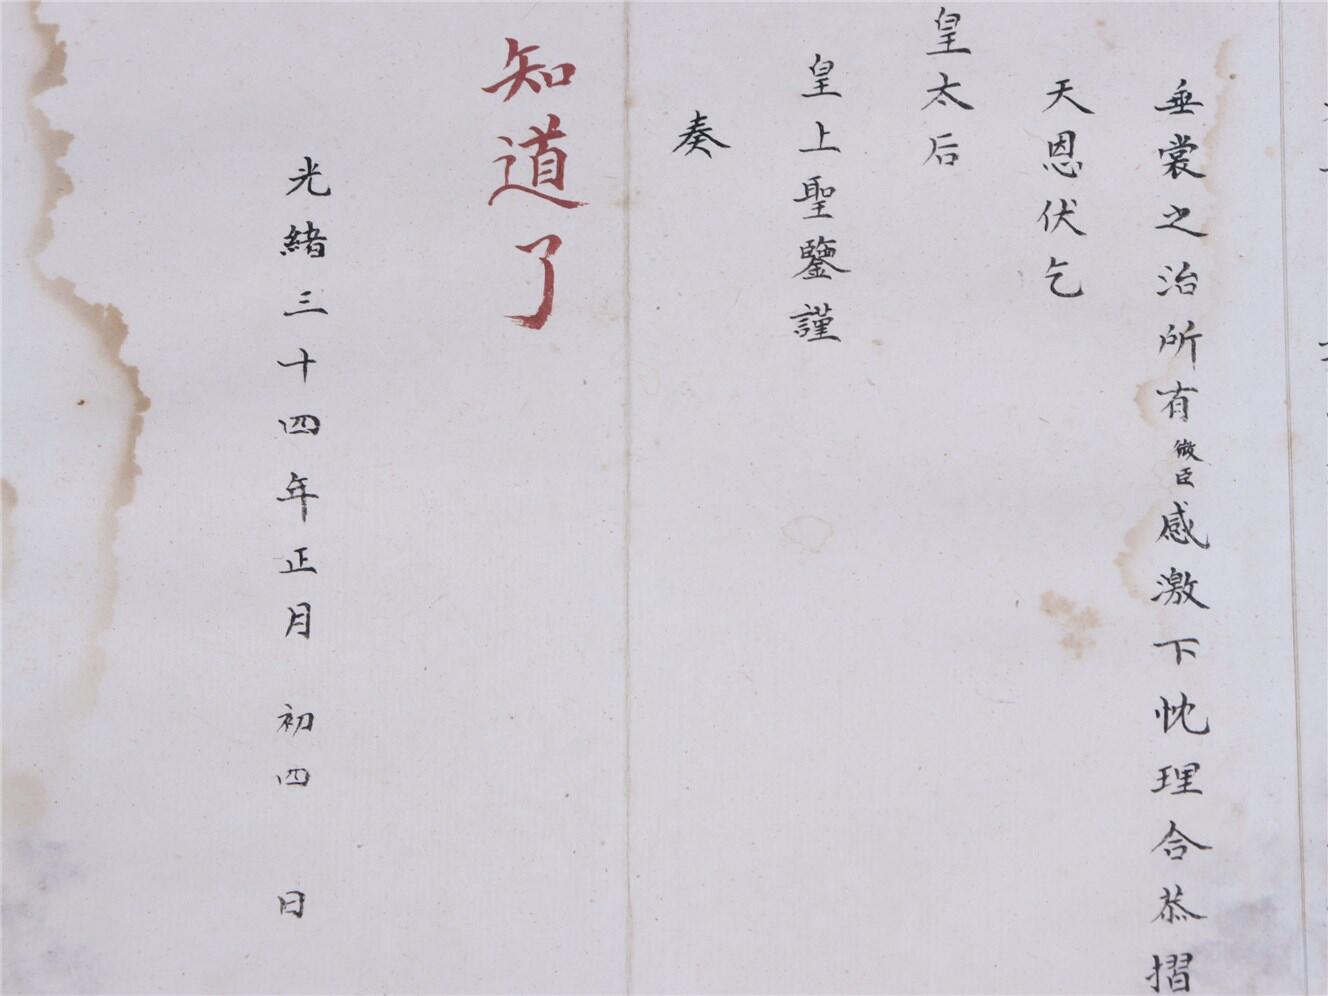 垂裳之治所有微臣感激下忱理合恭摺
天恩伏乞
皇太后
皇上聖鑒謹
奏
知道了
光緒三十四年正月初四日